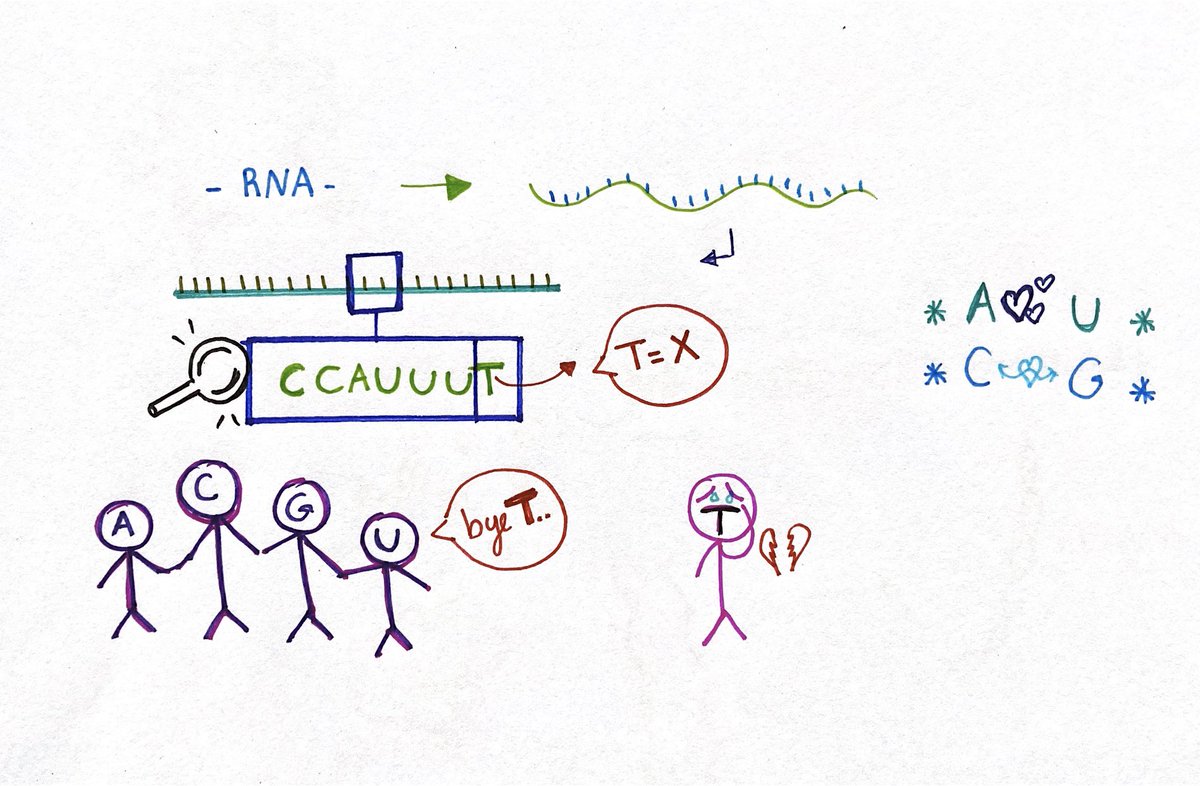 - RNA -
CCAUUUT
T = X
* A U *
* C G *
A
C
G
U
bye T..
T